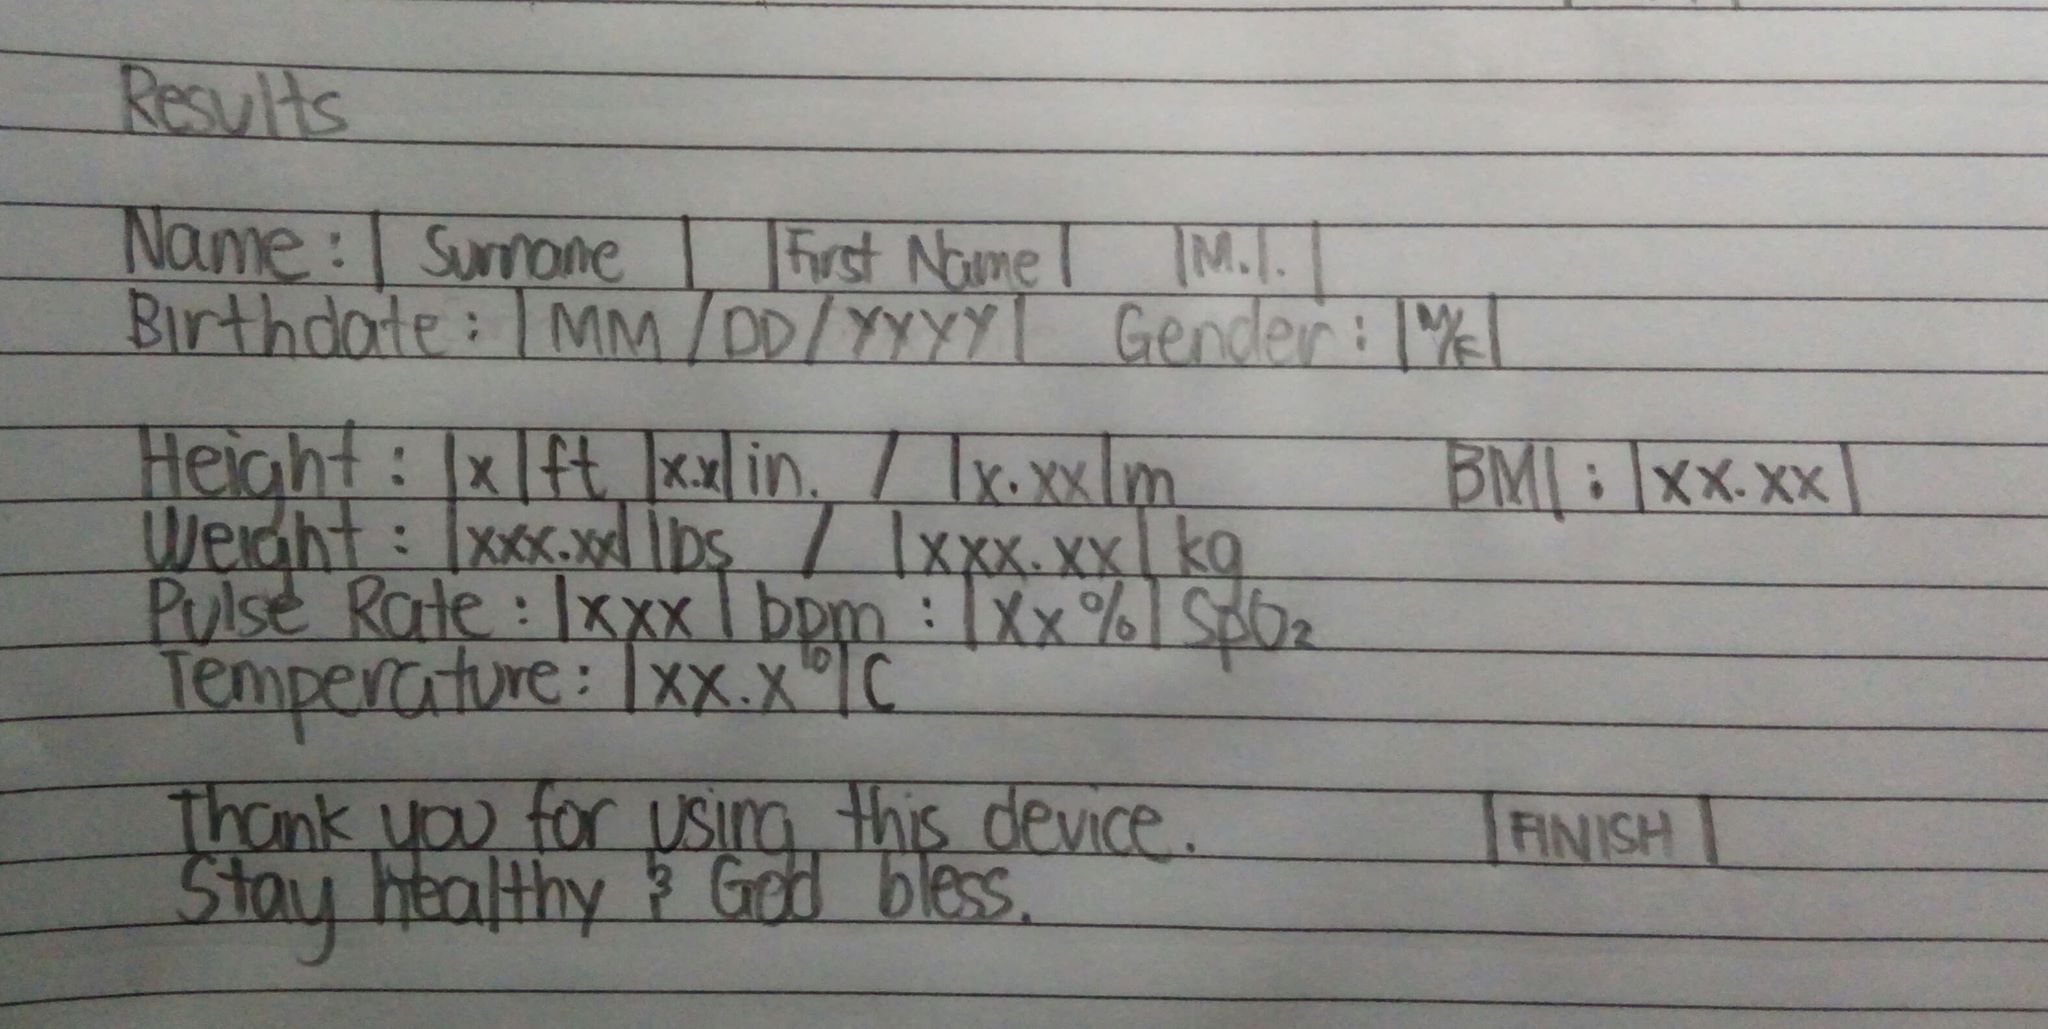 Results
Name: | Surname | | First Name | | M.I. |
Birthdate: | MM / DD / YYYY | Gender: | M/F |
Height: |x| ft |x.x| in. / |x.xx| m BMI: |xx.xx|
Weight: |xxx.xx| lbs / |xxx.xx| kg
Pulse Rate: |xxx| bpm : |xx%| SpO₂
Temperature: |xx.x°| C
Thank you for using this device. | FINISH |
Stay healthy & God bless.